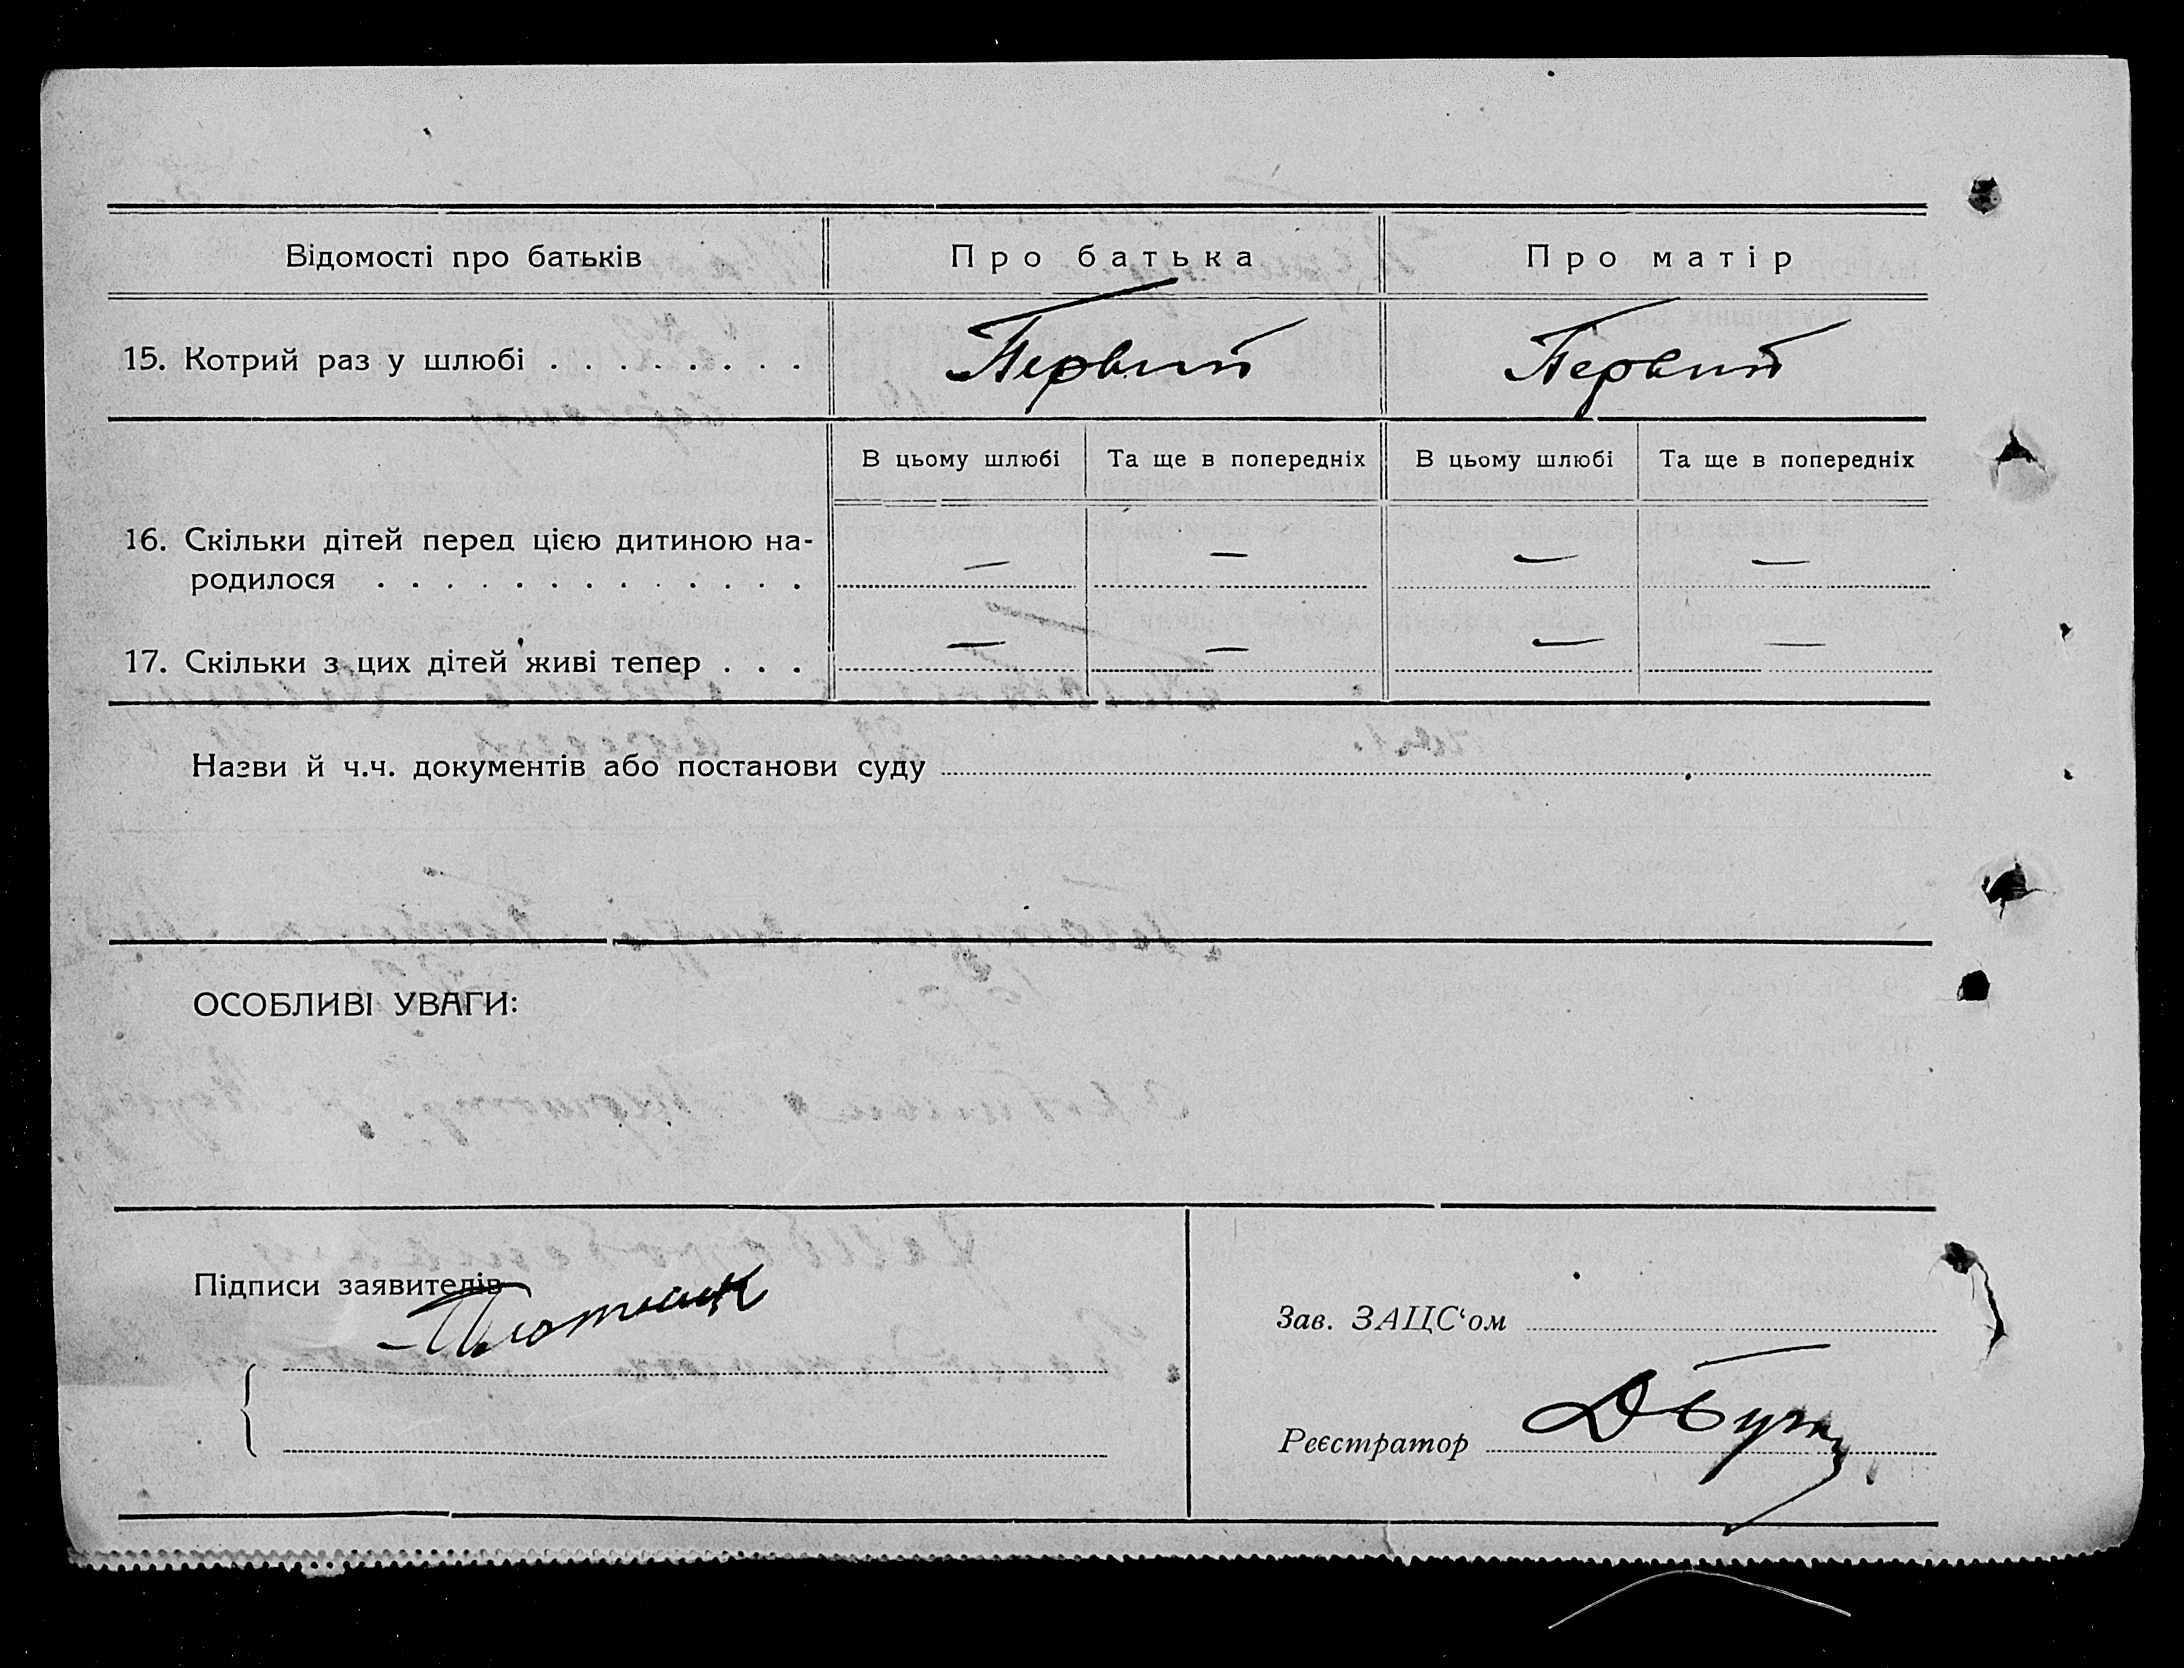 Відомості про батьків Про батька Про матір
15. Котрий раз у шлюбі . . . . . . . . Первий Первий
В цьому шлюбі Та ще в попередніх В цьому шлюбі Та ще в попередніх
16. Скільки дітей перед цією дитиною на-
родилося . . . . . . . . . . . . . — — — —
17. Скільки з цих дітей живі тепер . . . — — — —
Назви й ч.ч. документів або постанови суду
ОСОБЛИВІ УВАГИ:
Підписи заявителів
Плотник
Зав. ЗАЦС‘ом
Реєстратор